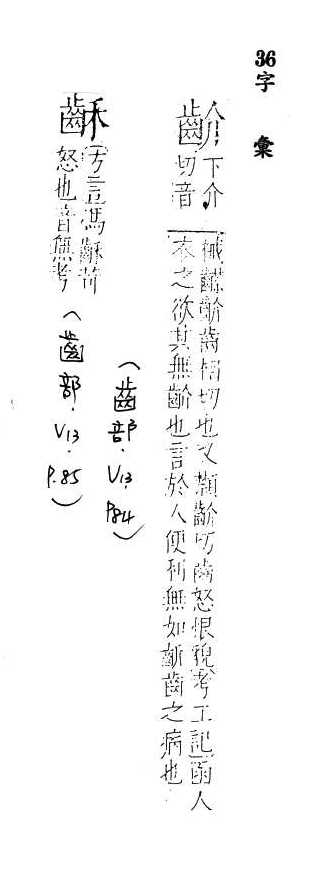 36字彙
齘 下介切音械䶦齘齒相切也又顡齘切齒怒恨貌考工記函人
衣之欲其無齘也言於人便利無如齘齒之病也
(齒部．V13，P.84)
龢 方言馮龢苛怒也音無考
(齒部．V13．P.85)